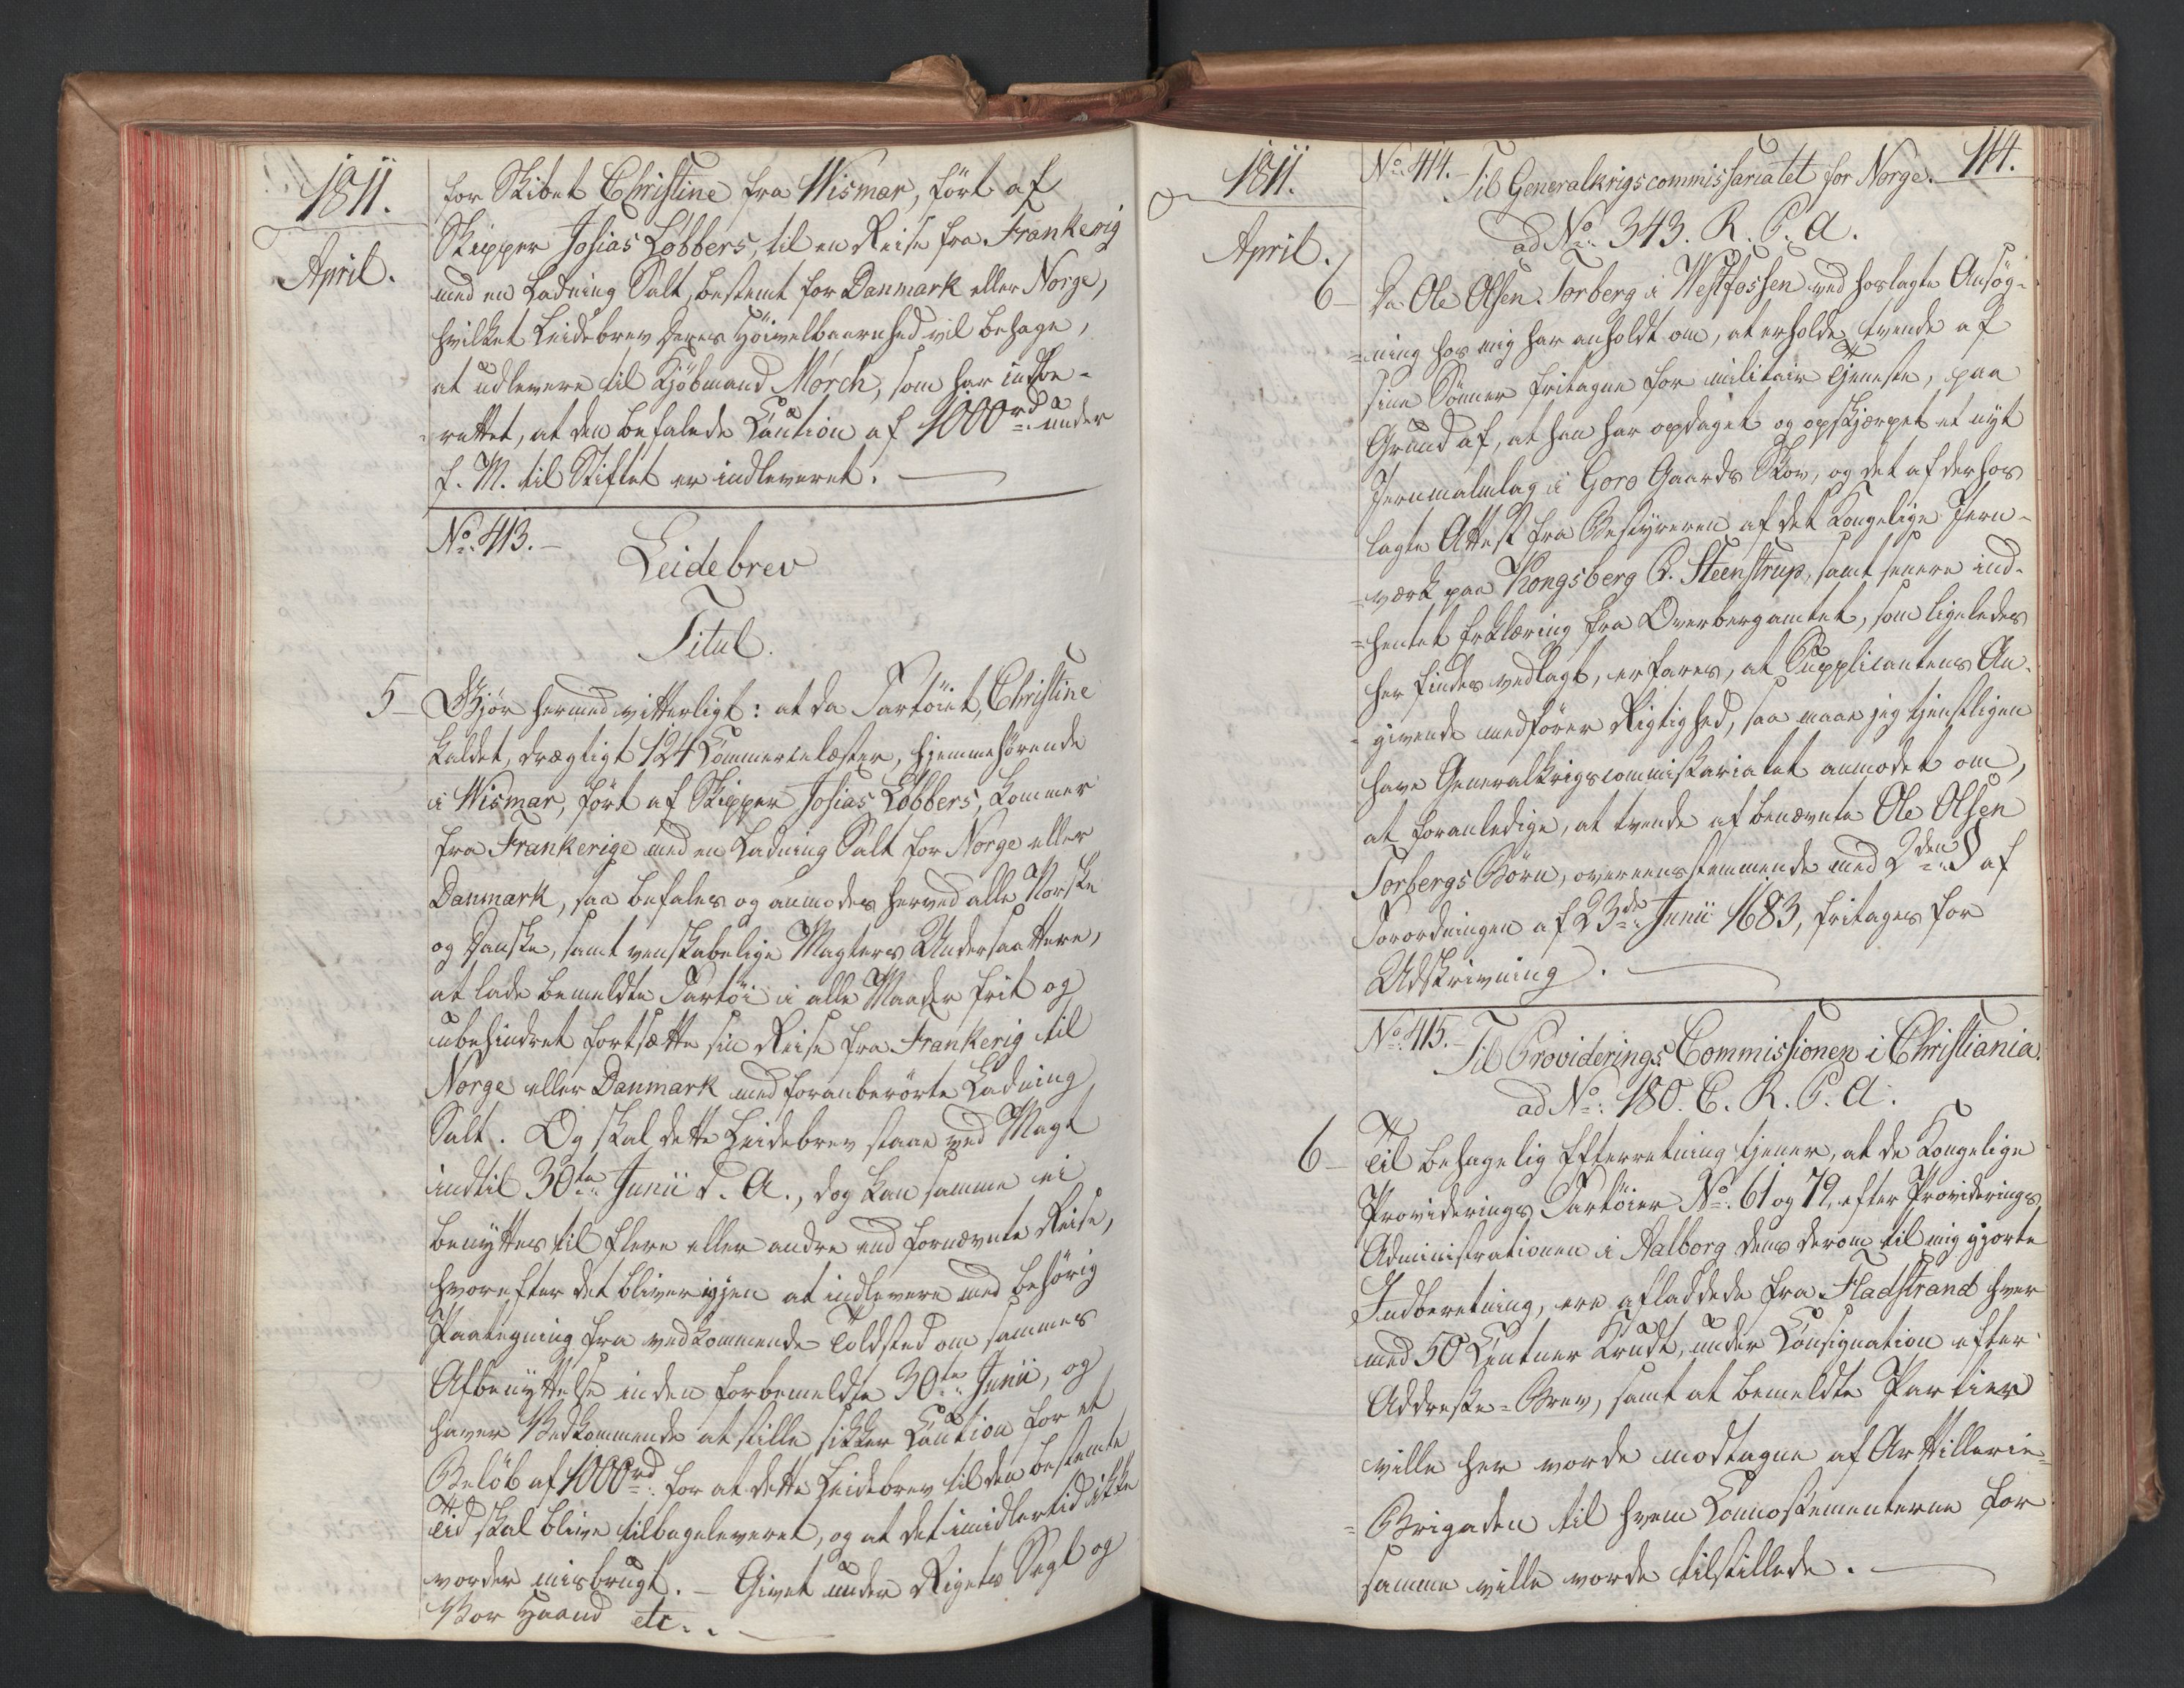 1811.
April.
for Skibet Christine fra Wismar, ført af
Skipper Josias Løbbers, til en Reise fra Frankerig
med en Ladning Salt, bestemt for Danmark eller Norge,
hvilket Leidebrev Deres Høivelbaarenhed vil behage,
at udlevere til Kjøbmand Mørch, som har indbe-
-rettet, at den befalede Caution af 1000rd under
f. M. til Stiftet er indleveret.
No. 413.-
Leidebrev
Titul.
5- Gjør hermed vitterligt: at da Fartöiet, Christine
kaldet, drægtigt 124 Commercelæster, hjemmehörende
i Wismar, fört af Skipper Josias Løbbers, kommer
fra Frankerige med en Ladning Salt for Norge eller
Danmark, saa befales og anmodes herved alle Norske
og Danske, samt venskabelige Magters Undersaattere,
at lade bemeldte Fartöi i alle Maader frit og
ubehindret fortsætte sin Reise fra Frankerig til
Norge eller Danmark med foranberörte Ladning
Salt. Og skal dette Leidebrev staae ved Magt
indtil 30te Junii d. A., dog kan samme ei
benyttes til flere eller andre end fornævnte Reise,
hvorefter det bliver igjen at indlevere med behörig
Paategning fra vedkommende Toldsted om sammes
Afbenyttelse inden forbemeldte 30te Junii, og
haver Vedkommende at stille sikker Caution for et
Belöb af 1000rd for at dette Leidebrev til den bestemte
Tid skal blive tilbageleveret, og at det imidlertid ikke
vorder misbrugt. - Givet under Rigets Segl og
Vor Haand etc..
1811.
April.
No. 414.- Til Generalkrigscommissariatet for Norge. 114.
ad No. 343. R. P. A.
6- Da Ole Olsen Torberg i Westfossen ved hoslagte Ansög-
=ning hos mig har anholdt om, at erholde tvende af
sine Sönner fritagne for militair Tjeneste, paa
Grund af, at han har opdaget og opskjærpet et nyt
Jernmalmlag i Goro Gaards Skov, og det af derhos
lagte Attest fra Bestyreren af det Kongelige Jern-
=værk paa Kongsberg P. Steenstrup, samt senere ind-
=hentet Erklæring fra Overbergamtet, som ligeledes
her findes vedlagt, erfares, at Supplicantens An-
-givende medförer Rigtighed, saa maae jeg tjenstligen
have Generalkrigscommissariatet anmodet om,
at foranledige, at tvende af benævnte Ole Olsen
Torbergs Börn, overeensstemmende med 2den § af
Forordningen af 23de Junii 1683, fritages for
Udskrivning.
No. 415.- Til Providerings Commissionen i Christiania.
ad No. 180. C. R. P. A.
6- Til behagelig Efterretning tjener, at de Kongelige
Providerings Fartöier No. 61 og 79, efter Providerings
Administrationen i Aalborg dens derom til mig gjorte
Indberetning, ere afladdede fra Fladstrand hver
med 50 Centner Krudt, under Consignation efter
Addresse-Brev, samt at bemeldte Partier
ville her vorde modtagne af Artillerie-
=Brigaden til hvem Connossementerne for
samme ville vorde tilstillede.